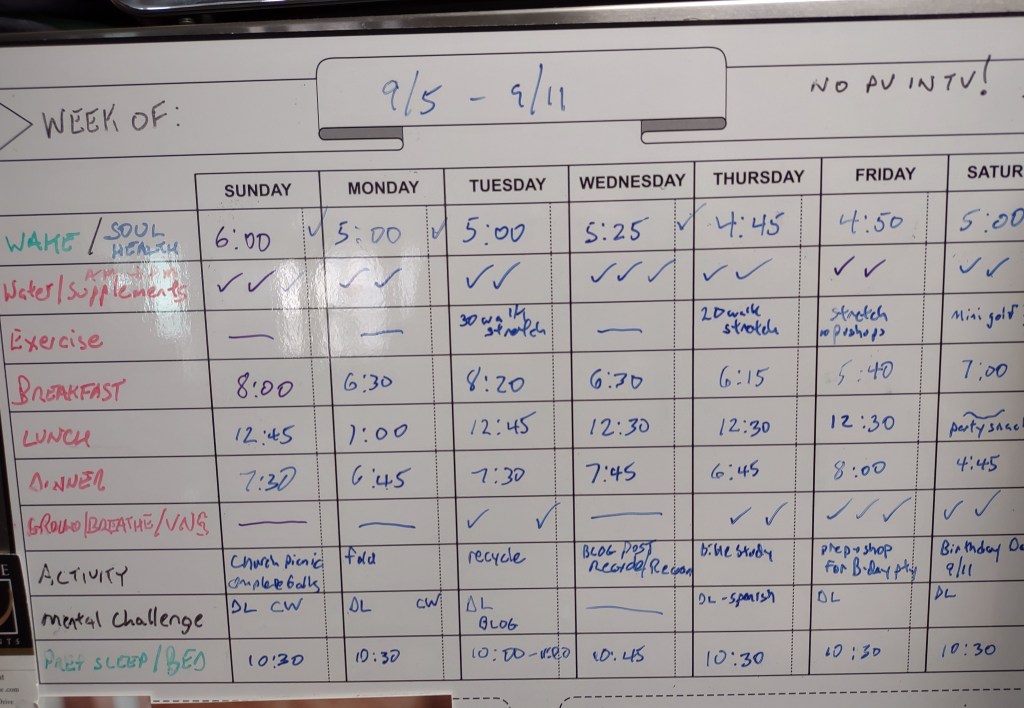 WEEK OF: 9/5 - 9/11 NO PV IN TV!
SUNDAY MONDAY TUESDAY WEDNESDAY THURSDAY FRIDAY SATUR
WAKE / SOUL HEALTH 6:00 ✓ 5:00 ✓ 5:00 5:25 ✓ 4:45 4:50 5:00
Water/Supplements AM + PM ✓✓ ✓✓ ✓✓ ✓✓✓ ✓✓ ✓✓ ✓✓
Exercise — — 30 walk stretch — 20 walk stretch stretch Mini golf
BREAKFAST 8:00 6:30 8:20 6:30 6:15 5:40 7:00
LUNCH 12:45 1:00 12:45 12:30 12:30 12:30 party snac
DINNER 7:30 6:45 7:30 7:45 6:45 8:00 4:45
GROUND/BREATHE/VNS — — ✓ ✓ — ✓✓ ✓✓✓ ✓✓
ACTIVITY Church Picnic complete fold recycle BLOG POST bible study prep + shop for B-day pty Birthday 9/11
mental challenge DL CW DL CW DL BLOG — DL - spanish DL DL
PREP SLEEP/BED 10:30 10:30 10:00 - 10:45 10:30 10:30 10:30